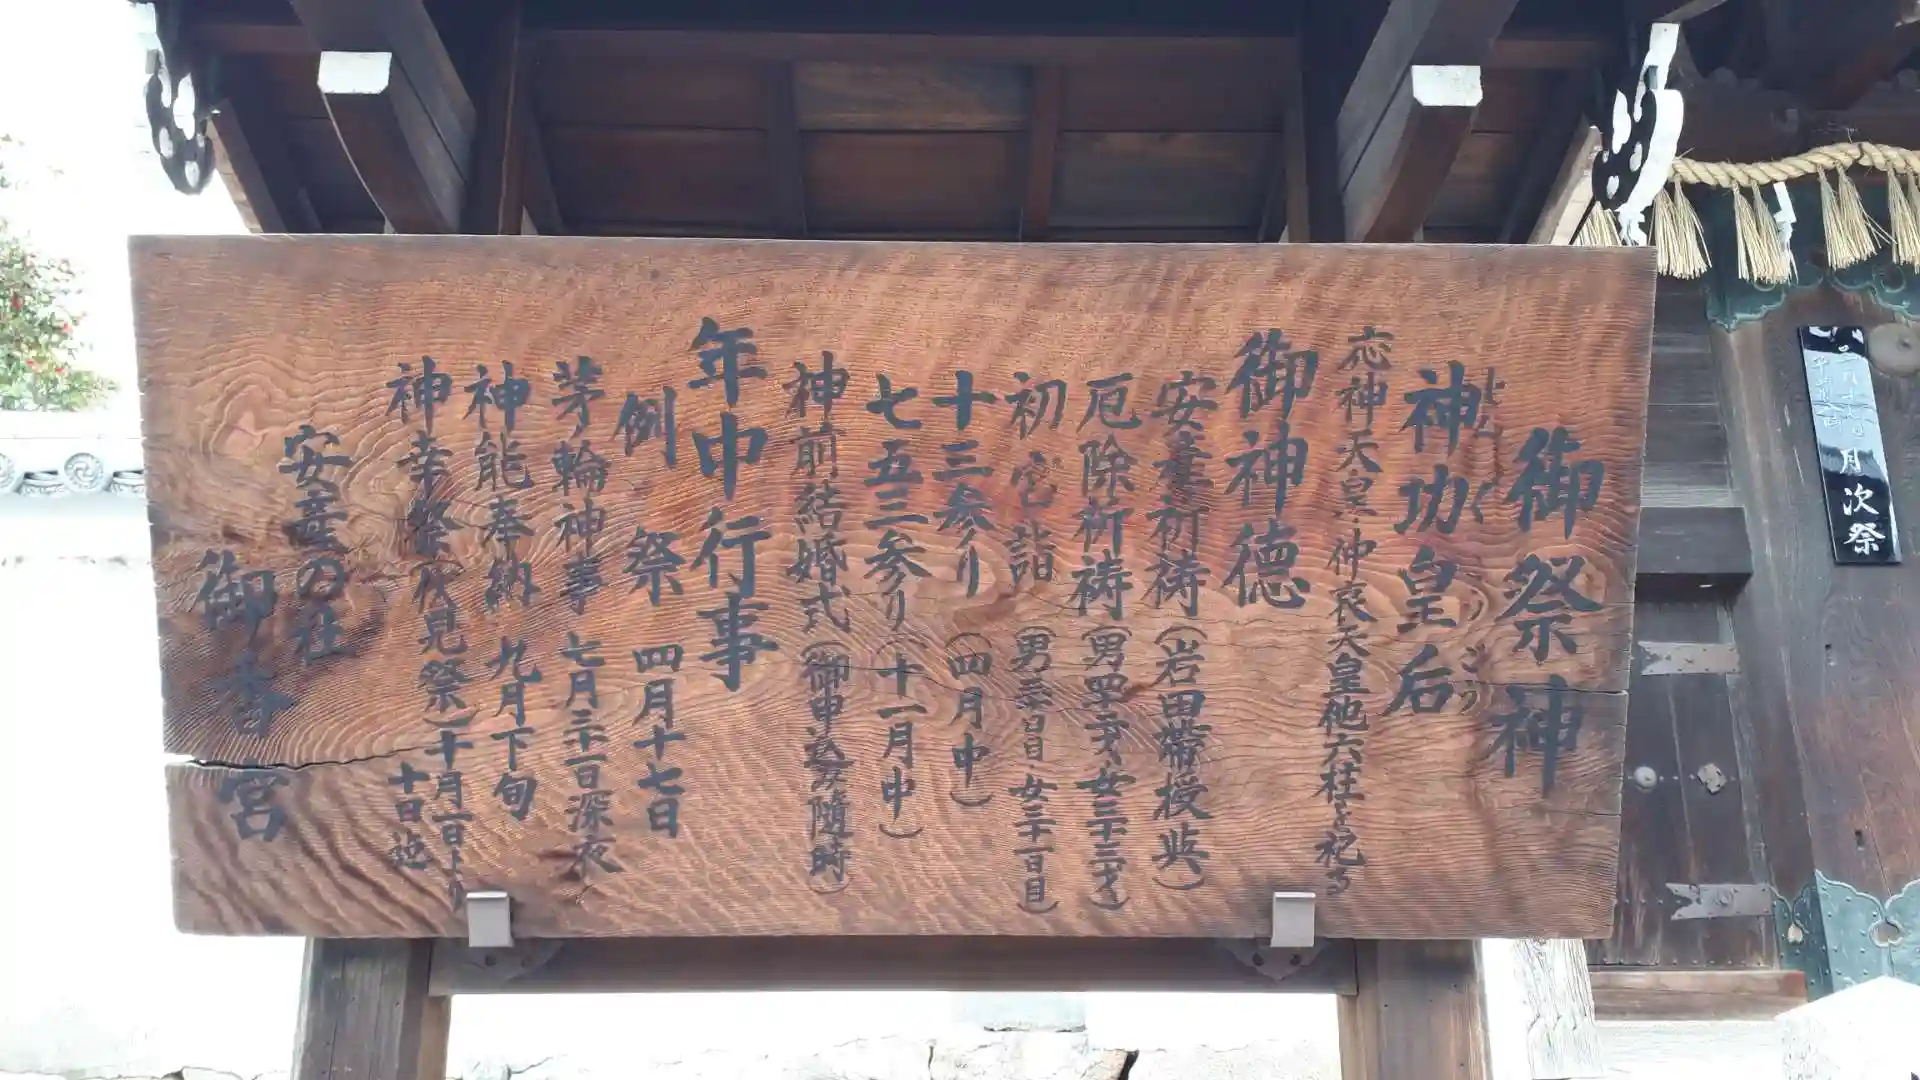 御祭神
神功皇后
じんぐうこうごう
応神天皇・仲哀天皇他六柱を祀る
御神徳
安産祈祷(岩田帯授与)
厄除祈祷(男四二才女三十三才)
初宮詣(男三十日目女三十一日目)
十三参り(四月中)
七五三参り(十一月中)
神前結婚式(御申込み随時)
年中行事
例祭 四月十七日
茅輪神事 七月三十一日深夜
神能奉納 九月下旬
神幸祭(伏見祭)十月一日より
十日迄
安産の社
御香宮
月次祭